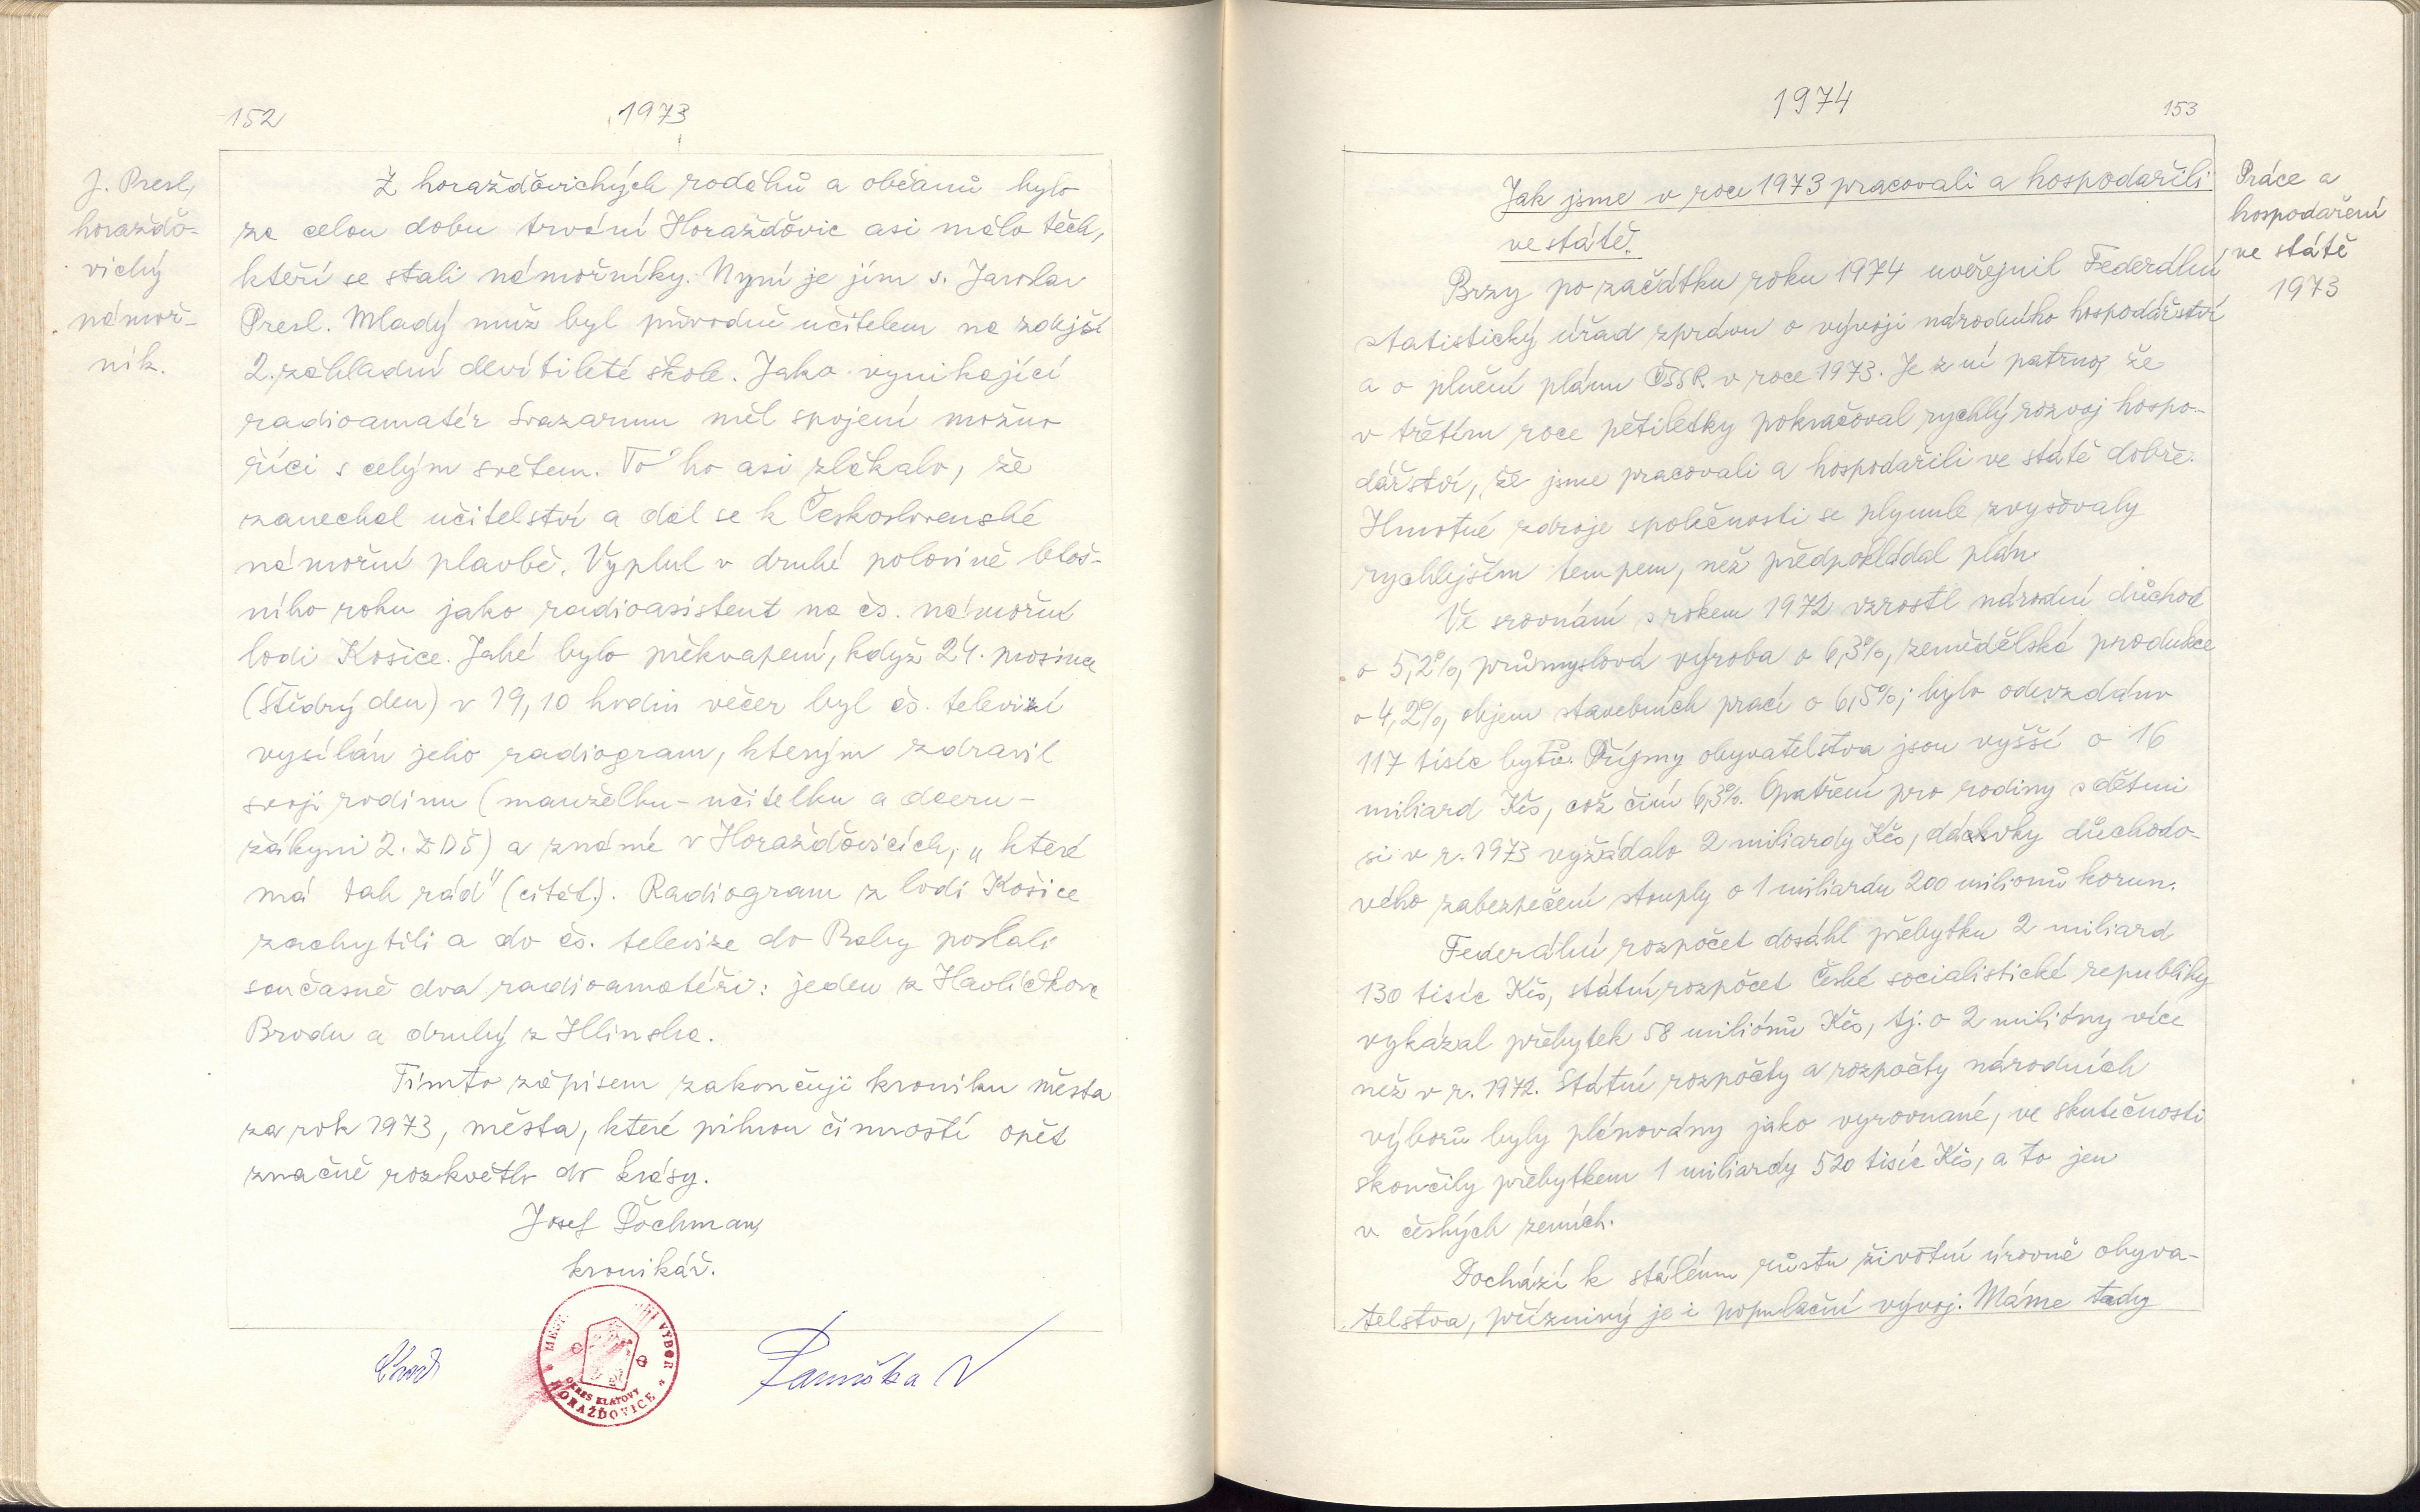 152
1973
J. Presl,
horažďo-
vický
námoř-
ník.
Z horažďovických rodáků a občanů bylo
za celou dobu trvání Horažďovic asi málo těch,
kteří se stali námořníky. Nyní je jím s. Jaroslav
Presl. Mladý muž byl původně učitelem na zdejší
2. základní devítileté škole. Jako vynikající
radioamatér Svazarmu měl spojení možno
říci s celým světem. To ho asi zlákalo, že
zanechal učitelství a dal se k Československé
námořní plavbě. Vyplul v druhé polovině letoš-
ního roku jako radioasistent na čs. námořní
lodi Košice. Jaké bylo překvapení, když 24. prosince
(Štědrý den) v 19,10 hodin večer byl čs. televizí
vysílán jeho radiogram, kterým zdravil
svoji rodinu (manželku - učitelku a dceru -
žákyni 2. ZDŠ) a známé v Horažďovicích, „které
má tak rád" (citát). Radiogram z lodi Košice
zachytili a do čs. televize do Prahy poslali
současně dva radioamatéři: jeden z Havlíčkova
Brodu a druhý z Hlinska.
Tímto zápisem zakončuji kroniku města
za rok 1973, města, které pilnou činností opět
značně rozkvětlo do krásy.
Josef Pachman,
kronikář.
MĚST. VÝBOR
OKRES KLATOVY
HORAŽĎOVICE
1974
153
Práce a
hospodaření
ve státě
1973
Jak jsme v roce 1973 pracovali a hospodařili
ve státě.
Brzy po začátku roku 1974 uveřejnil Federální
statistický úřad zprávu o vývoji národního hospodářství
a o plnění plánu ČSSR v roce 1973. Je z ní patrno, že
v třetím roce pětiletky pokračoval rychlý rozvoj hospo-
dářství, že jsme pracovali a hospodařili ve státě dobře.
Hmotné zdroje společnosti se plynule zvyšovaly
rychlejším tempem, než předpokládal plán.
Ve srovnání s rokem 1972 vzrostl národní důchod
o 5,2%, průmyslová výroba o 6,3%, zemědělská produkce
o 4,2%, objem stavebních prací o 6,5%; bylo odevzdáno
117 tisíc bytů. Příjmy obyvatelstva jsou vyšší o 16
miliard Kčs, což činí 6,3%. Opatření pro rodiny s dětmi
si v r. 1973 vyžádalo 2 miliardy Kčs, dávky důchodo-
vého zabezpečení stouply o 1 miliardu 200 milionů korun.
Federální rozpočet dosáhl přebytku 2 miliard
130 tisíc Kčs, státní rozpočet České socialistické republiky
vykázal přebytek 58 miliónů Kčs, tj. o 2 milióny více
než v r. 1972. Státní rozpočty a rozpočty národních
výborů byly plánovány jako vyrovnané, ve skutečnosti
skončily přebytkem 1 miliardy 520 tisíc Kčs, a to jen
v českých zemích.
Dochází k stálému růstu životní úrovně obyva-
telstva, příznivý je i populační vývoj. Máme tedy